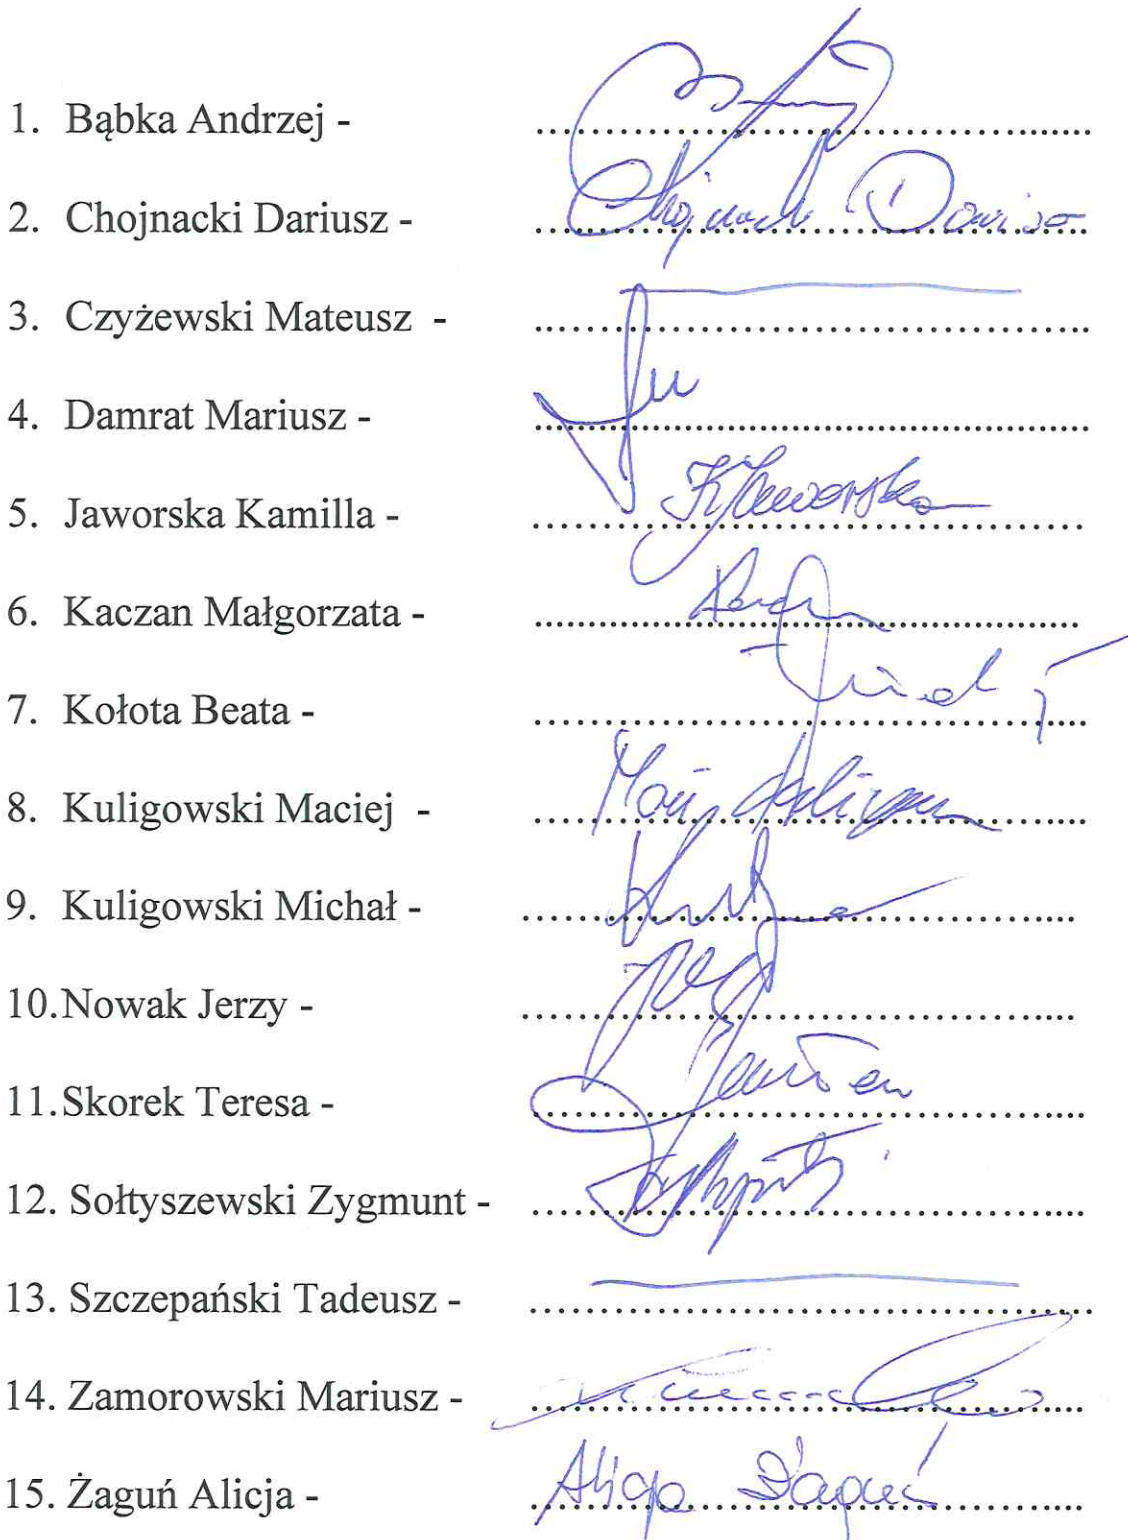 1. Bąbka Andrzej - ........................................
2. Chojnacki Dariusz - Chojnacki Dariusz
3. Czyżewski Mateusz - ........................................
4. Damrat Mariusz - ........................................
5. Jaworska Kamilla - KJaworska
6. Kaczan Małgorzata - ........................................
7. Kołota Beata - ........................................
8. Kuligowski Maciej - ........................................
9. Kuligowski Michał - ........................................
10. Nowak Jerzy - ........................................
11. Skorek Teresa - ........................................
12. Sołtyszewski Zygmunt - ........................................
13. Szczepański Tadeusz - ........................................
14. Zamorowski Mariusz - ........................................
15. Żaguń Alicja - Alicja Żaguń